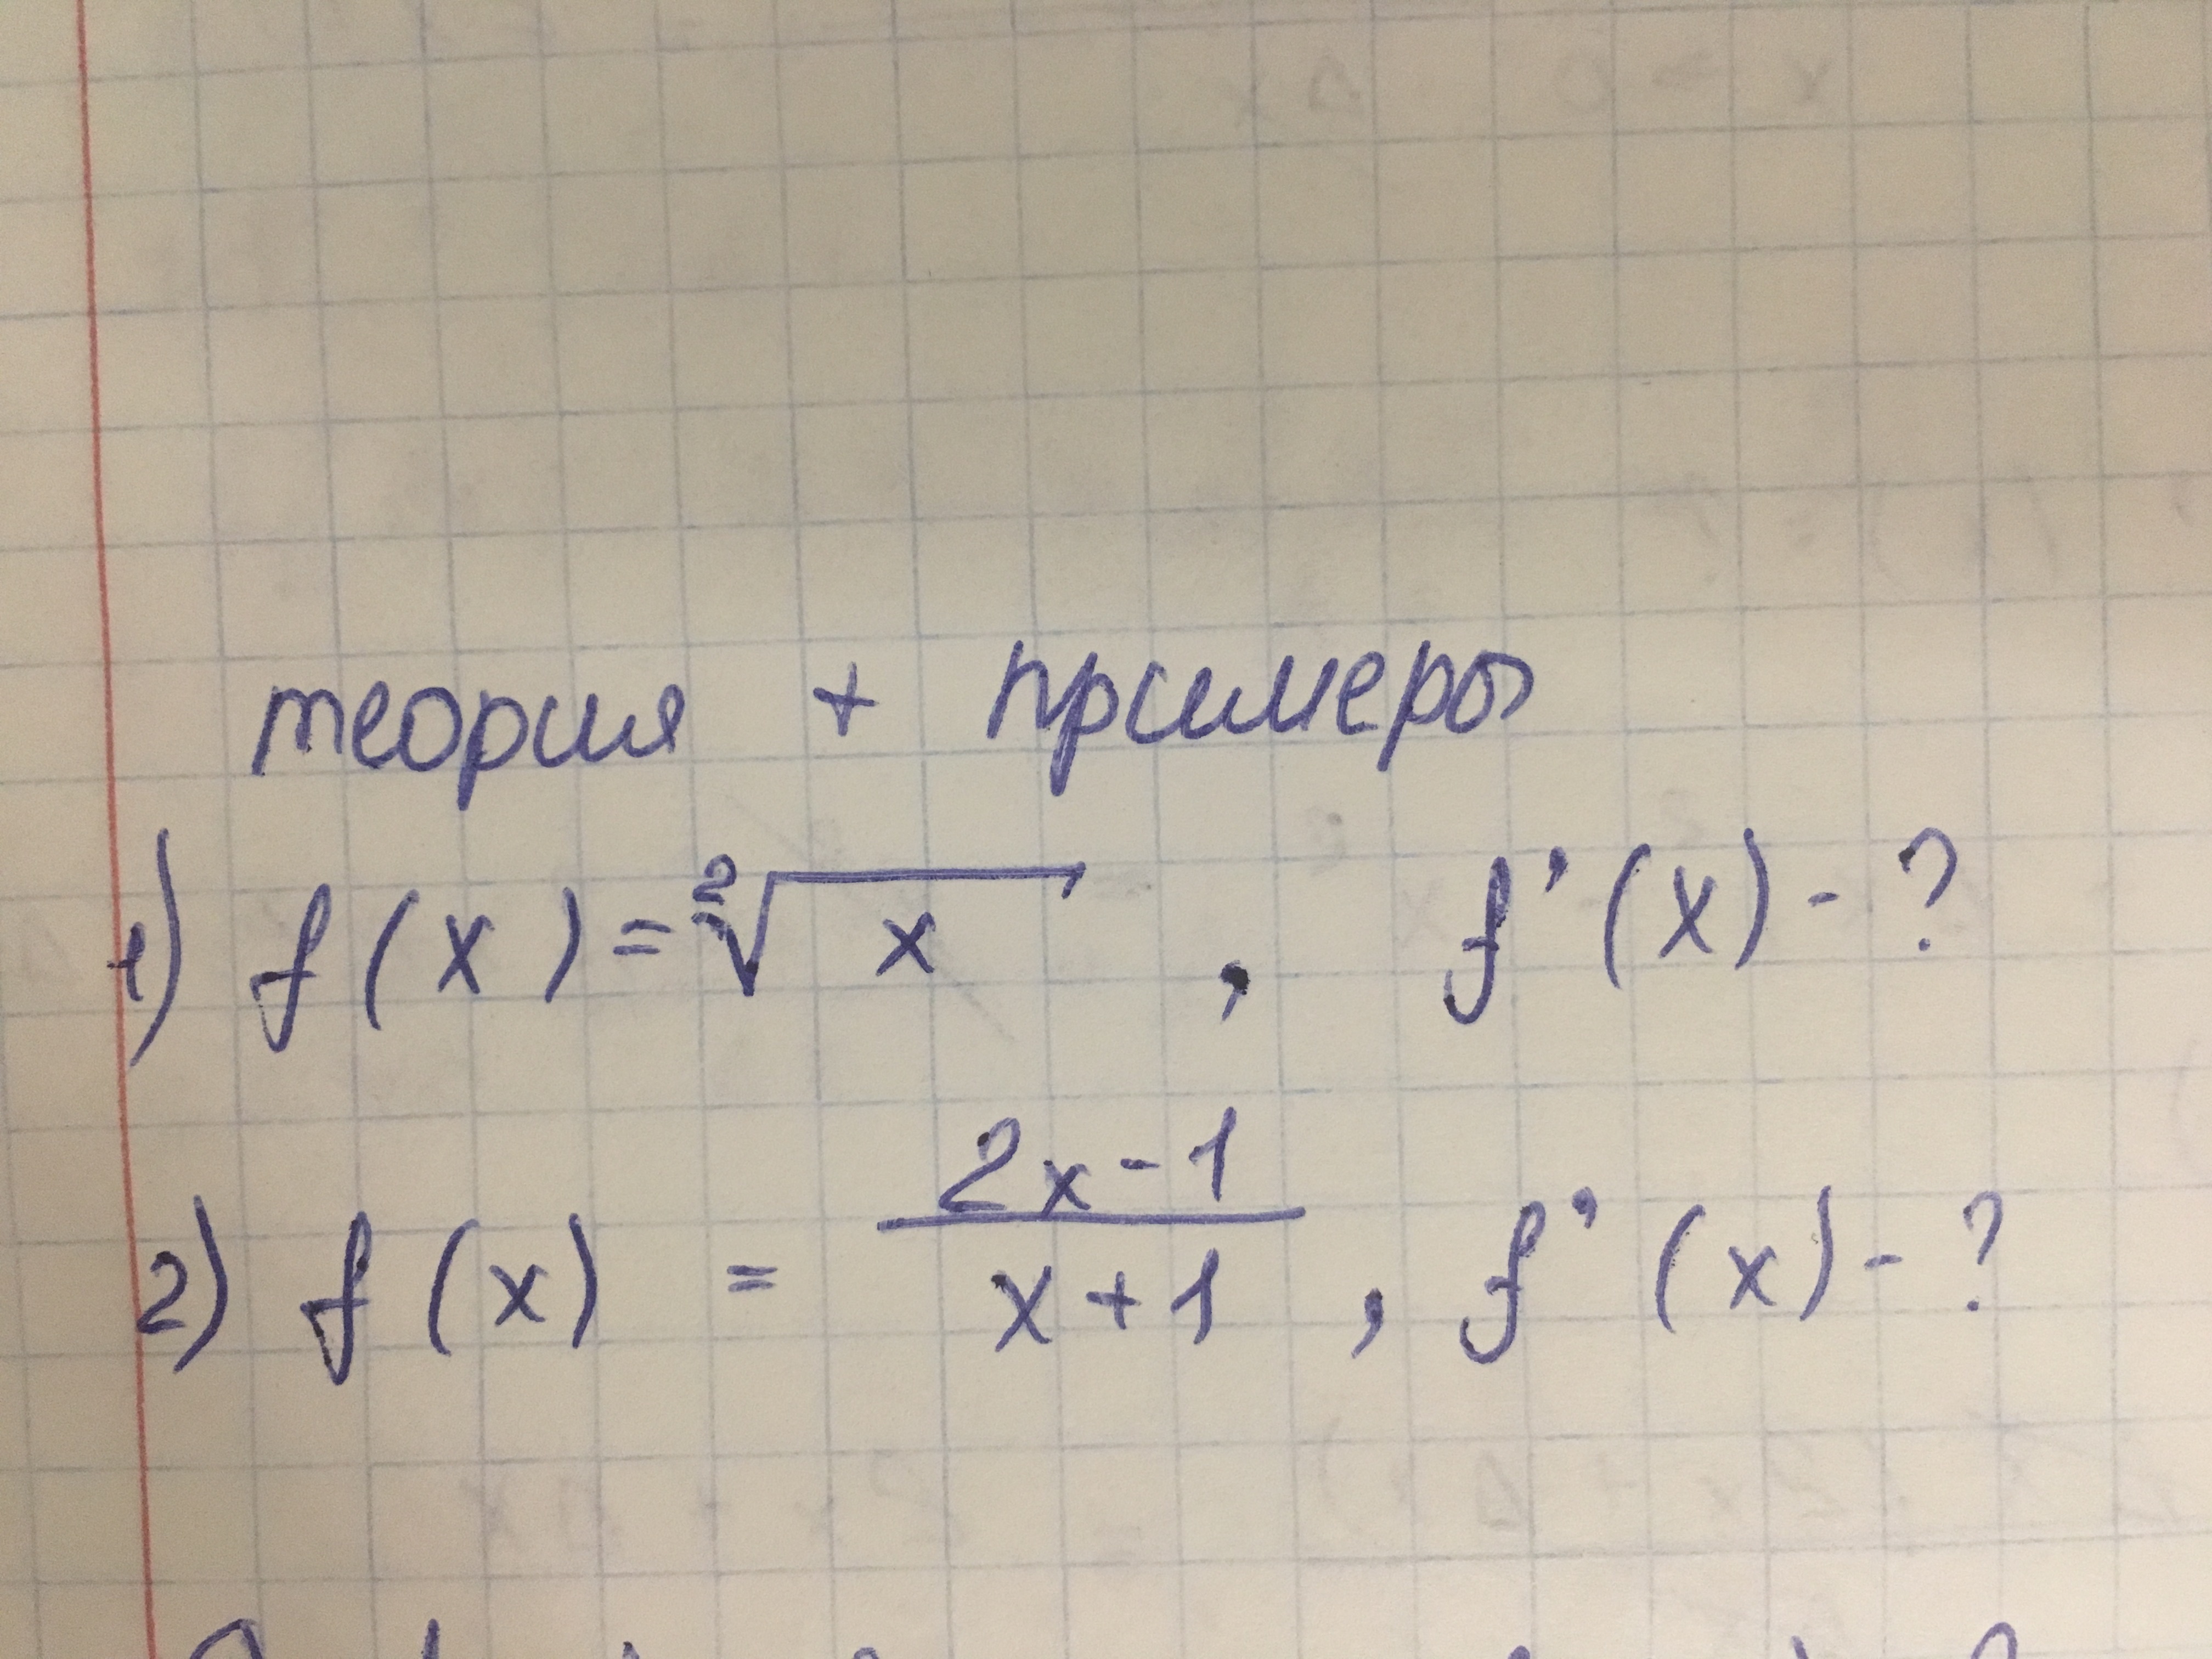 теория + примеры
1) f(x) = ²√x , f'(x) - ?
2) f(x) = (2x-1)/(x+1) , f'(x) - ?